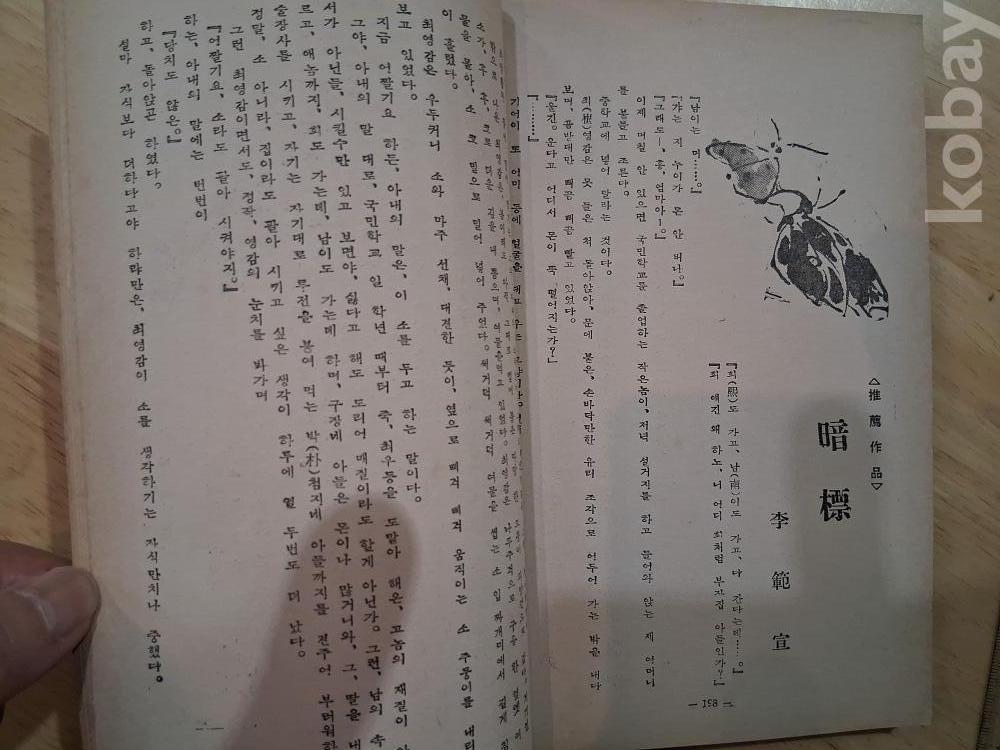 kobay
△推薦作品▽
暗標
李範宣
『희(熙)도 가고, 남(南)이도 가고, 다 간다는데……。』
『희 얘긴 왜 하노, 너 어디 희처럼 부자집 아들인가?』
『남이는 머……。』
『갸는 지 누이가 돈 안 버나。』
『그래도ー, 흥, 엄마아ー。』
이제 며칠 안 있으면 국민학교를 졸업하는 작은놈이, 저녁 설거지를 하고 들어와 앉는 제 어머니
를 붙들고 조른다。
중학교에 넣어 달라는 것이다。
최(崔)영감은 못 들은 척 돌아앉아, 문에 붙은, 손바닥만한 유리 조각으로 어두어 가는 밖을 내다
보며, 곰방대만 뻐끔 뻐끔 빨고 있었다。
『울긴。 운다고 어디서 돈이 뚝 떨어지는가?』
『……。』
— 158 —
이 흘렀다。
최영감은 우두커니 소와 마주 선채, 대견한 듯이, 옆으로 삐걱 삐걱 움직이는 소 주둥이를
보고 있었다。
지금 어쩔기요 하든, 아내의 말은, 이 소를 두고 하는 말이다。
그야, 아내의 말 대로, 국민학교 일 학년 때부터 죽, 최우등을 도맡아 해온, 고놈의 재질이
서가 아닌들, 시킬수만 있고 보면야, 싫다고 해도 도리어 매질이라도 할게 아닌가。 그런, 남의 속
르고, 애놈까지, 희도 가는데, 남이도 가는데 하며, 구장네 아들은 돈이나 많거니와, 그, 딸을
술장사를 시키고, 자기는 자기대로 투전을 붙여 먹는 박(朴)첨지네 아들까지를 견주어 부러워
정말, 소 아니라, 집이라도 팔아 시키고 싶은 생각이 하루에 열 두번도 더 났다。
그런 최영감이면서도, 정작, 영감의 눈치를 봐가며
『어쩔기요, 소라도 팔아 시켜야지。』
하는, 아내의 말에는 번번이
『당치도 않은。』
하고, 돌아앉곤 하였다。
설마 자식보다 더하다고야 하랴만은, 최영감이 소를 생각하기는 자식만치나 중했다。